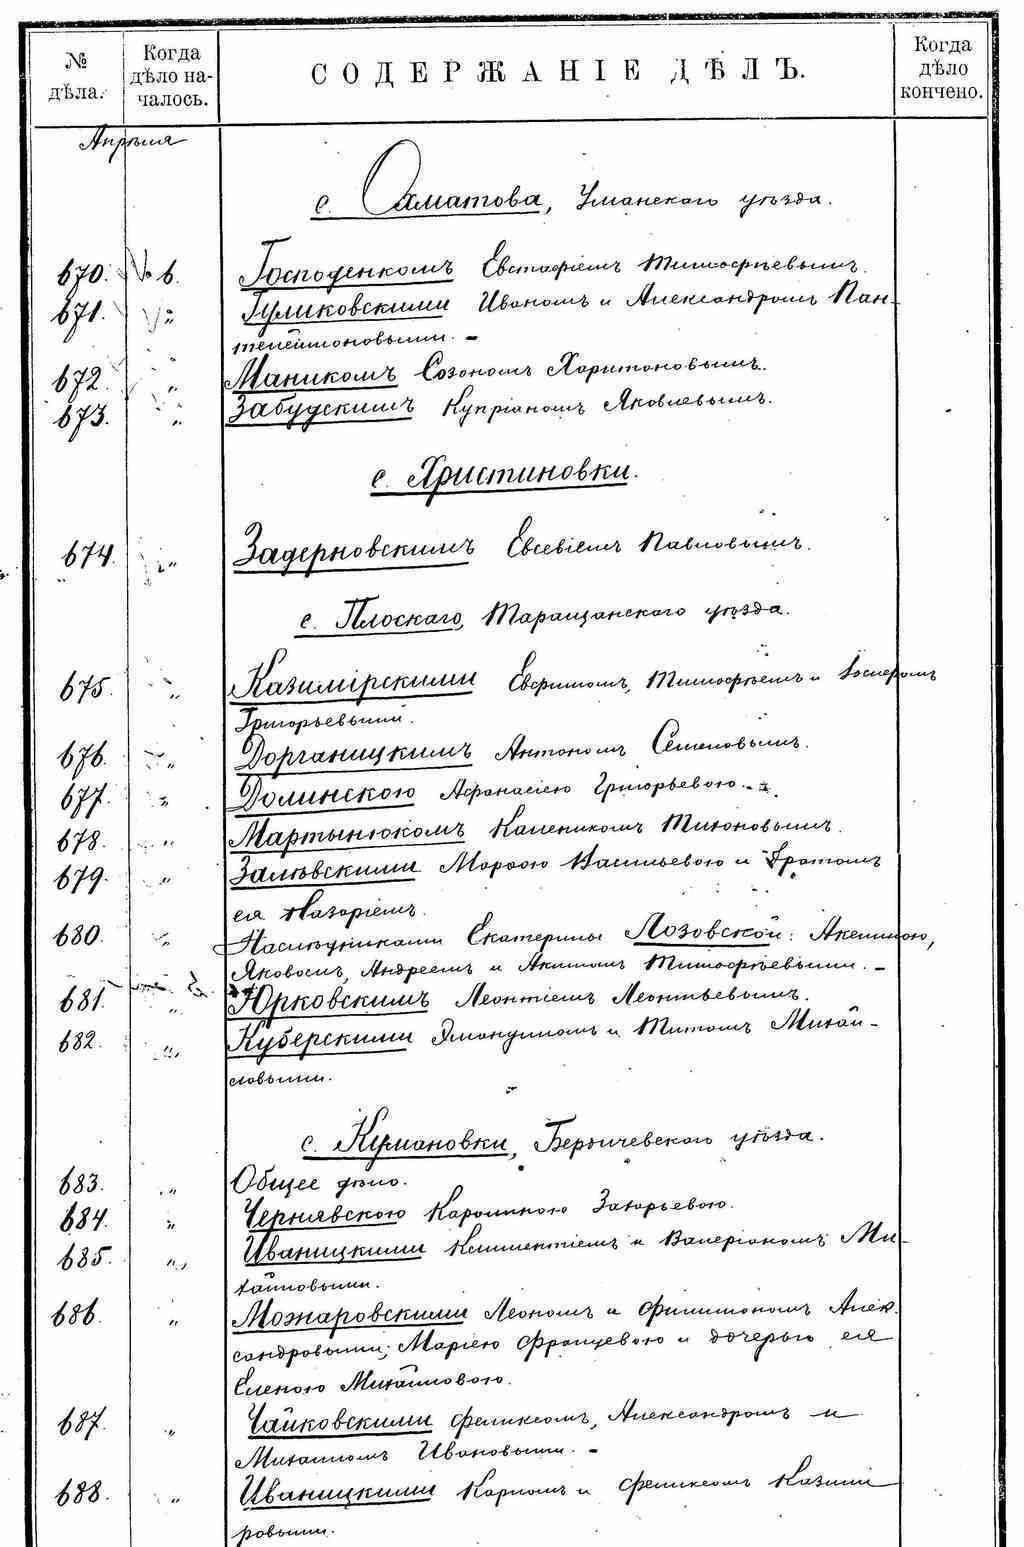 № дѣла.
Когда дѣло на-чалось.
СОДЕРЖАНІЕ ДѢЛЪ.
Когда дѣло кончено.
Апрѣля
с. Охматова, Уманскаго уѣзда.
670. № 6. Господенкомъ Евстафіемъ Тимофѣевымъ.
671. „ Гуликовскими Иваномъ и Александромъ Пан-
телеймоновыми. –
672. „ Маникомъ Созономъ Харитоновымъ.
673. „ Забудскимъ Купріаномъ Яковлевымъ.
с. Христиновки.
674. „ Задерновскимъ Евсевіемъ Павловымъ.
с. Плоскаго, Таращанскаго уѣзда.
675. „ Казимірскими Евфимомъ, Тимофѣемъ и
Григорьевыми.
676. „ Дорганицкимъ Антономъ Семеновымъ.
677. „ Долинскою Афанасіею Григорьевою. –
678. „ Мартынюкомъ Каленикомъ Тихоновымъ.
679. „ Залѣвскими Марѳою Васильевою и братомъ
ея Назаріемъ.
680. „ Наслѣдниками Екатерины Лозовской: Акелиною,
Яковомъ, Андреемъ и Акимомъ Тимофѣевыми. –
681. „ Юрковскимъ Леонтіемъ Леонтьевымъ.
682. „ Куберскими и Титомъ Михай-
ловыми.
с. Кумановки, Бердичевскаго уѣзда.
683. „ Общее дѣло.
684. „ Чернявскою Каролиною Захарьевою.
685. „ Иваницкими Климентіемъ и Валеріаномъ Ми-
хайловыми.
686. „ Можаровскими Леономъ и Филимономъ Алек-
сандровыми; Маріею Францевою и дочерью ея
Еленою Михайловою.
687. „ Чайковскими Феликсомъ, Александромъ и
Михаиломъ Ивановыми. –
688. „ Иваницкими Карломъ и Феликсомъ Казими
ровыми.